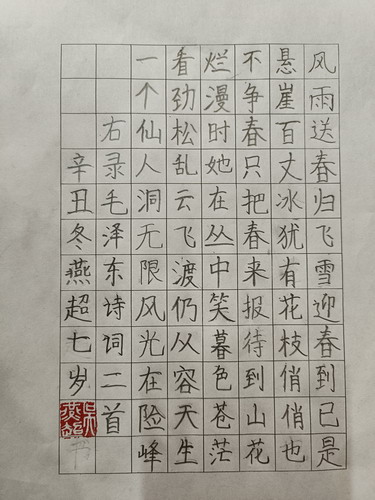 风雨送春归飞雪迎春到已是
悬崖百丈冰犹有花枝俏俏也
不争春只把春来报待到山花
烂漫时她在丛中笑暮色苍茫
看劲松乱云飞渡仍从容天生
一个仙人洞无限风光在险峰
右录毛泽东诗词二首
辛丑冬燕超七岁
吴燕超
书